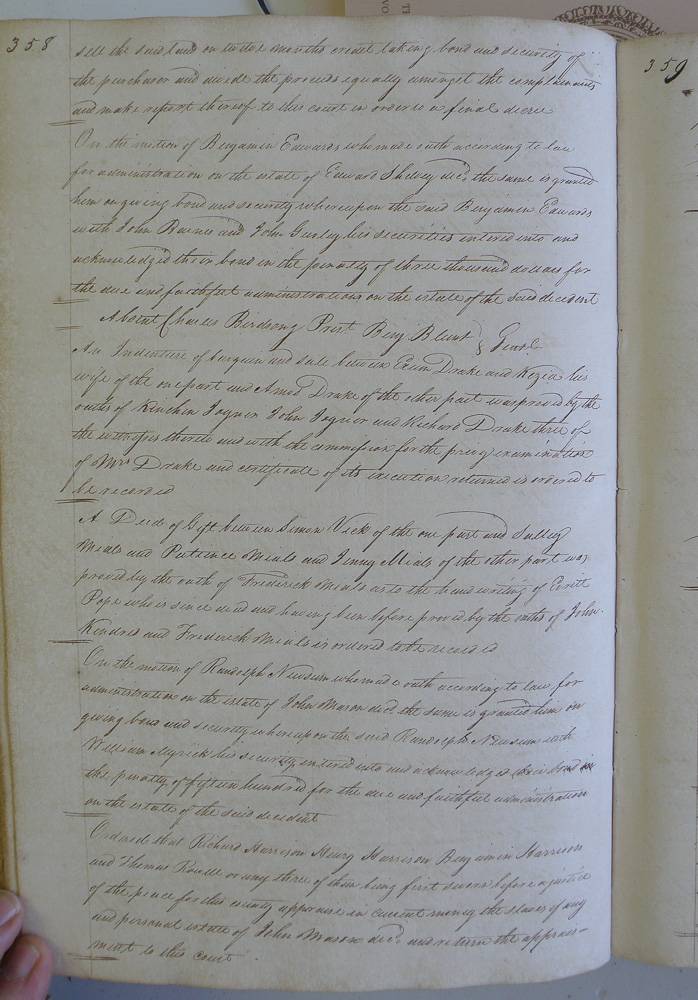 358
sell the said land on twelve months credit taking bond and security of
the purchaser and divide the proceeds equally amongst the complainants
and make report thereof to this court in order to a final decree
On the motion of Benjamin Edwards who made oath according to law
for administration on the estate of Edward Shelley decd. the same is granted
him on giving bond and security whereupon the said Benjamin Edwards
with John Barnes and John Gurley his securities entered into and
acknowledged their bond in the penalty of three thousand dollars for
the due and faithful administration on the estate of the said decedent
Absent Charles Birdsong Prest Benj Blunt } Gent.
An Indenture of bargain and sale between Exum Drake and Kezia his
wife of the one part and Amos Drake of the other part was proved by the
oaths of Kinchen Joyner John Joyner and Richard Drake three of
the witnesses thereto and with the commission for the privy examination
of Mrs. Drake and certificate of its execution returned is ordered to
be recorded
A Deed of Gift between Simon Vick of the one part and Salley
Mials and Patience Mials and Jenny Mials of the other part was
proved by the oath of Frederick Mials as to the hand writing of
Pope who is since dead and having been before proved by the oaths of John
Kindred and Frederick Mials is ordered to be recorded
On the motion of Randolph Newsum who made oath according to law for
administration on the estate of John Mason decd. the same is granted him on
giving bond and security whereupon the said Randolph Newsum with
William Myrick his security entered into and acknowledged their bond in
the penalty of fifteen hundred for the due and faithful administration
on the estate of the said decedent
Ordered that Richard Harrison Henry Harrison Benjamin Harrison
and Thomas or any three of them being first sworn before a justice
of the peace for this county appraise in current money the slaves if any
and personal estate of John Mason decd. and return the appraise-
ment to this court.
359